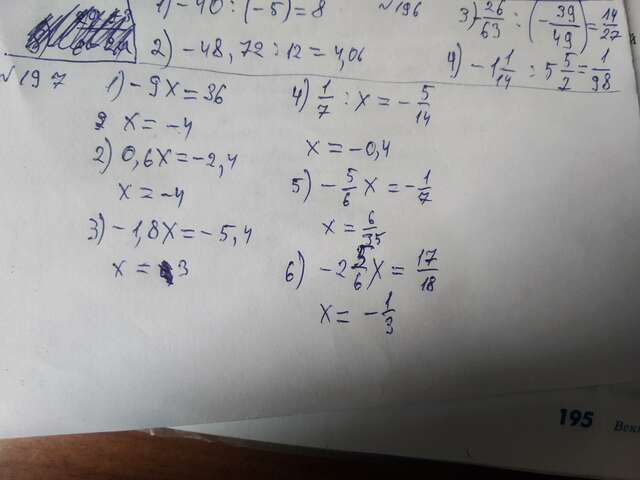 1) -40 : (-5) = 8
№196
3) -26/63 : (-39/49) = 14/27
2) -48,72 : 12 = 4,06
4) -1 1/14 : 5 5/7 = 1/98
№197
1) -9x = 36
x = -4
2) 0,6x = -2,4
x = -4
3) -1,8x = -5,4
x = 3
4) 1/7 : x = -5/14
x = -0,4
5) -5/6 x = -1/7
x = 6/35
6) -2 5/6 x = 17/18
x = -1/3
195